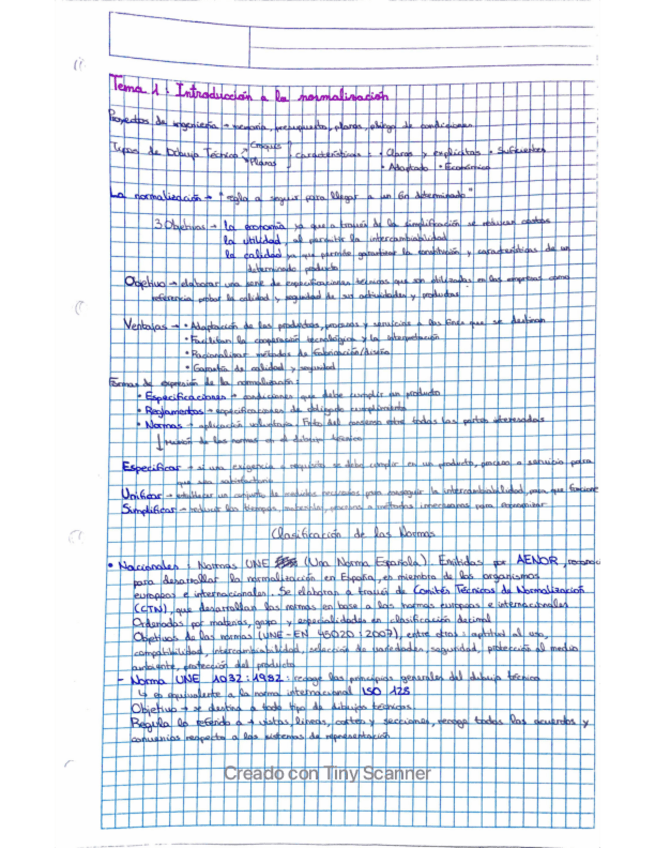 Tema 1: Introducción a la normalización
Proyectos de ingeniería → memoria, presupuesto, planos, pliego de condiciones
Tipos de Dibujo Técnico → Croquis → Planos características: • Claros y explícitos • Suficientes
• Adaptado • Económico
La normalización → "regla a seguir para llegar a un fin determinado"
3 Objetivos → la economía ya que a través de la simplificación se reducen costos
la utilidad, al permitir la intercambiabilidad
la calidad ya que permite garantizar la constitución y características de un
determinado producto
Objetivo → elaborar una serie de especificaciones técnicas que son utilizadas en las empresas como
referencia probar la calidad y seguridad de sus actividades y productos
Ventajas → • Adaptación de los productos, procesos y servicios a los fines que se destinan
• Facilitan la cooperación tecnológica y la interpretación
• Racionalizar métodos de fabricación/diseño
• Garantía de calidad y seguridad
Formas de expresión de la normalización:
• Especificaciones → condiciones que debe cumplir un producto
• Reglamentos → especificaciones de obligado cumplimiento
• Normas → aplicación voluntaria. Fruto del consenso entre todas las partes interesadas
↓ Misión de las normas en el dibujo técnico
Especificar → si una exigencia o requisito se debe cumplir en un producto, proceso o servicio para
que sea satisfactorio
Unificar → establecer un conjunto de medidas necesarias para conseguir la intercambiabilidad, para que funcione
Simplificar → reducir los tiempos, materiales, procesos o métodos innecesarios para economizar
Clasificación de las Normas
• Nacionales: Normas UNE (Una Norma Española). Emitidas por AENOR,
para desarrollar la normalización en España, es miembro de los organismos
europeos e internacionales. Se elaboran a través de Comités Técnicos de Normalización
(CTN), que desarrollan las normas en base a las normas europeas e internacionales
Ordenadas por materias, grupo y especialidades en clasificación decimal
Objetivos de las normas (UNE-EN 45020:2007), entre otros: aptitud al uso,
compatibilidad, intercambiabilidad, selección de variedades, seguridad, protección al medio
ambiente, protección del producto
- Norma UNE 1032:1982: recoge los principios generales del dibujo técnico
↳ es equivalente a la norma internacional ISO 128
Objetivo → se destina a todo tipo de dibujos técnicos
Regula lo referido a → vistas, líneas, cortes y secciones, recoge todos los acuerdos y
convenios respecto a los sistemas de representación
Creado con Tiny Scanner